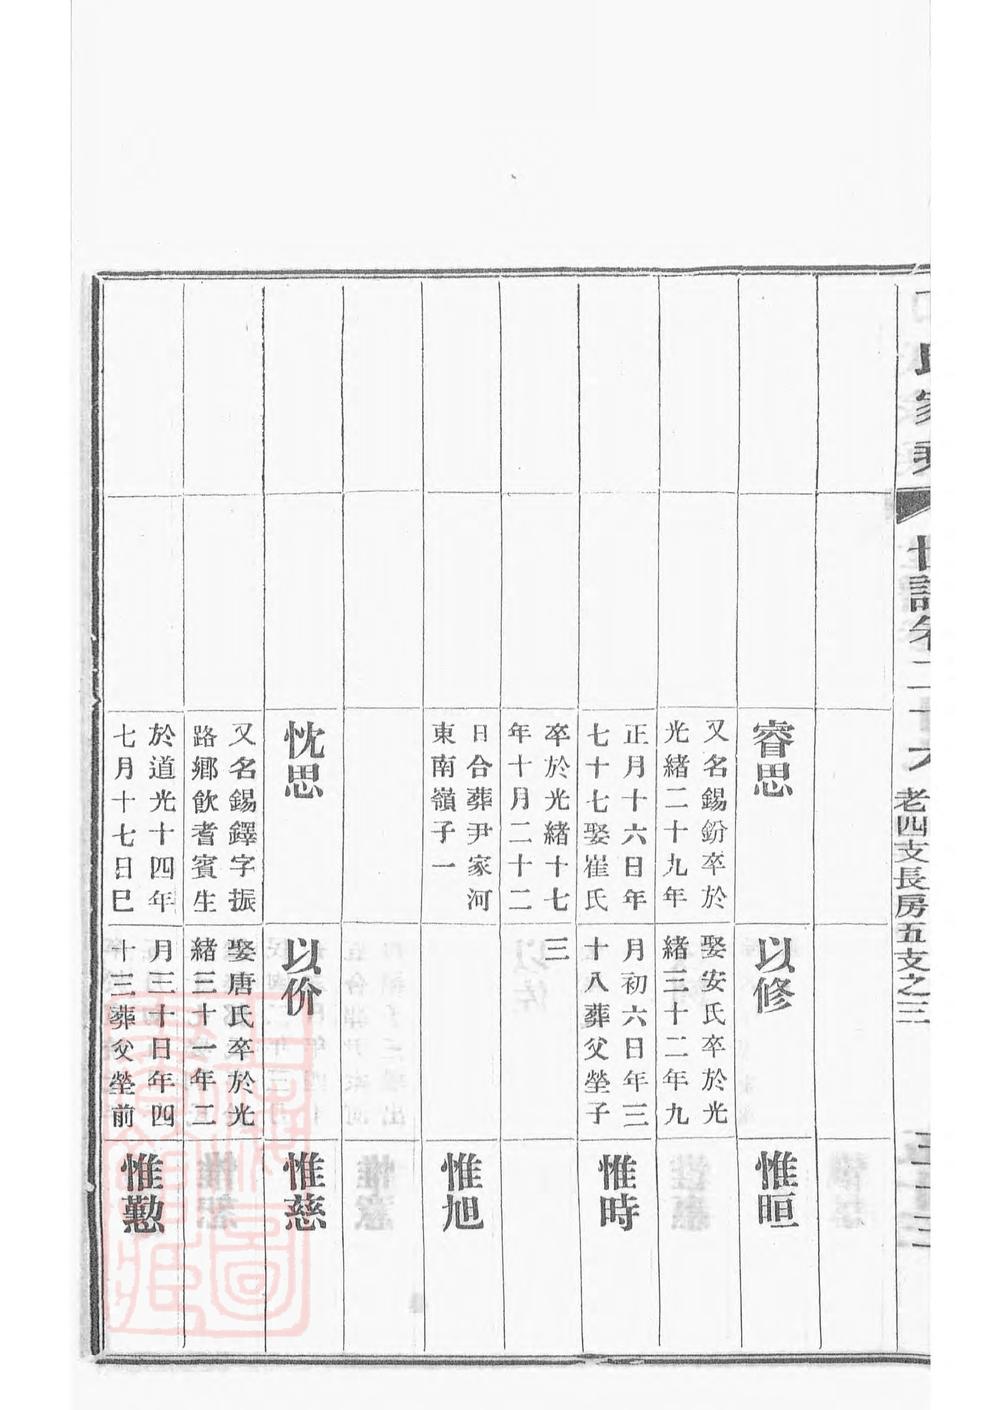 氏家乘
世譜卷二十
老四支長房五支之三
三十三
睿思
又名錫鈖卒於
光緒二十九年
正月十六日年
七十七娶崔氏
卒於光緒十七
年十月二十二
日合葬尹家河
東南嶺子一
忱思
又名錫鐸字振
路鄉飲耆賓生
於道光十四年
七月十七日巳
以修
娶安氏卒於光
緒三十二年九
月初六日年三
十八葬父塋子
三
以价
娶唐氏卒於光
緒三十一年二
月三十日年四
十三葬父塋前
惟晅
惟時
惟旭
惟慈
惟懃